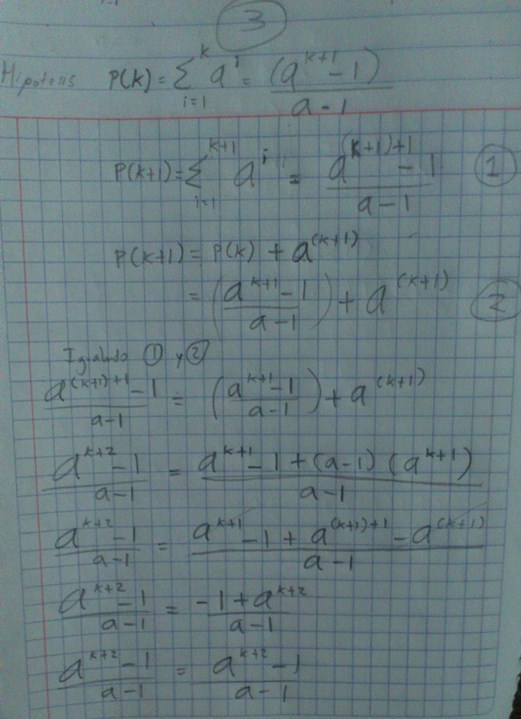 3
Hipotesis P(k) = \sum_{i=1}^{k} a^{i} = \frac{(a^{k+1} - 1)}{a - 1}
P(k+1) = \sum_{i=1}^{k+1} a^{i} = \frac{a^{(k+1)+1} - 1}{a - 1} ①
P(k+1) = P(k) + a^{(k+1)}
= \left(\frac{a^{k+1} - 1}{a - 1}\right) + a^{(k+1)} ②
Igualando ① y ②
\frac{a^{(k+1)+1} - 1}{a - 1} = \left(\frac{a^{k+1} - 1}{a - 1}\right) + a^{(k+1)}
\frac{a^{k+2} - 1}{a - 1} = \frac{a^{k+1} - 1 + (a - 1)(a^{k+1})}{a - 1}
\frac{a^{k+2} - 1}{a - 1} = \frac{a^{k+1} - 1 + a^{(k+1)+1} - a^{(k+1)}}{a - 1}
\frac{a^{k+2} - 1}{a - 1} = \frac{-1 + a^{k+2}}{a - 1}
\frac{a^{k+2} - 1}{a - 1} = \frac{a^{k+2} - 1}{a - 1}